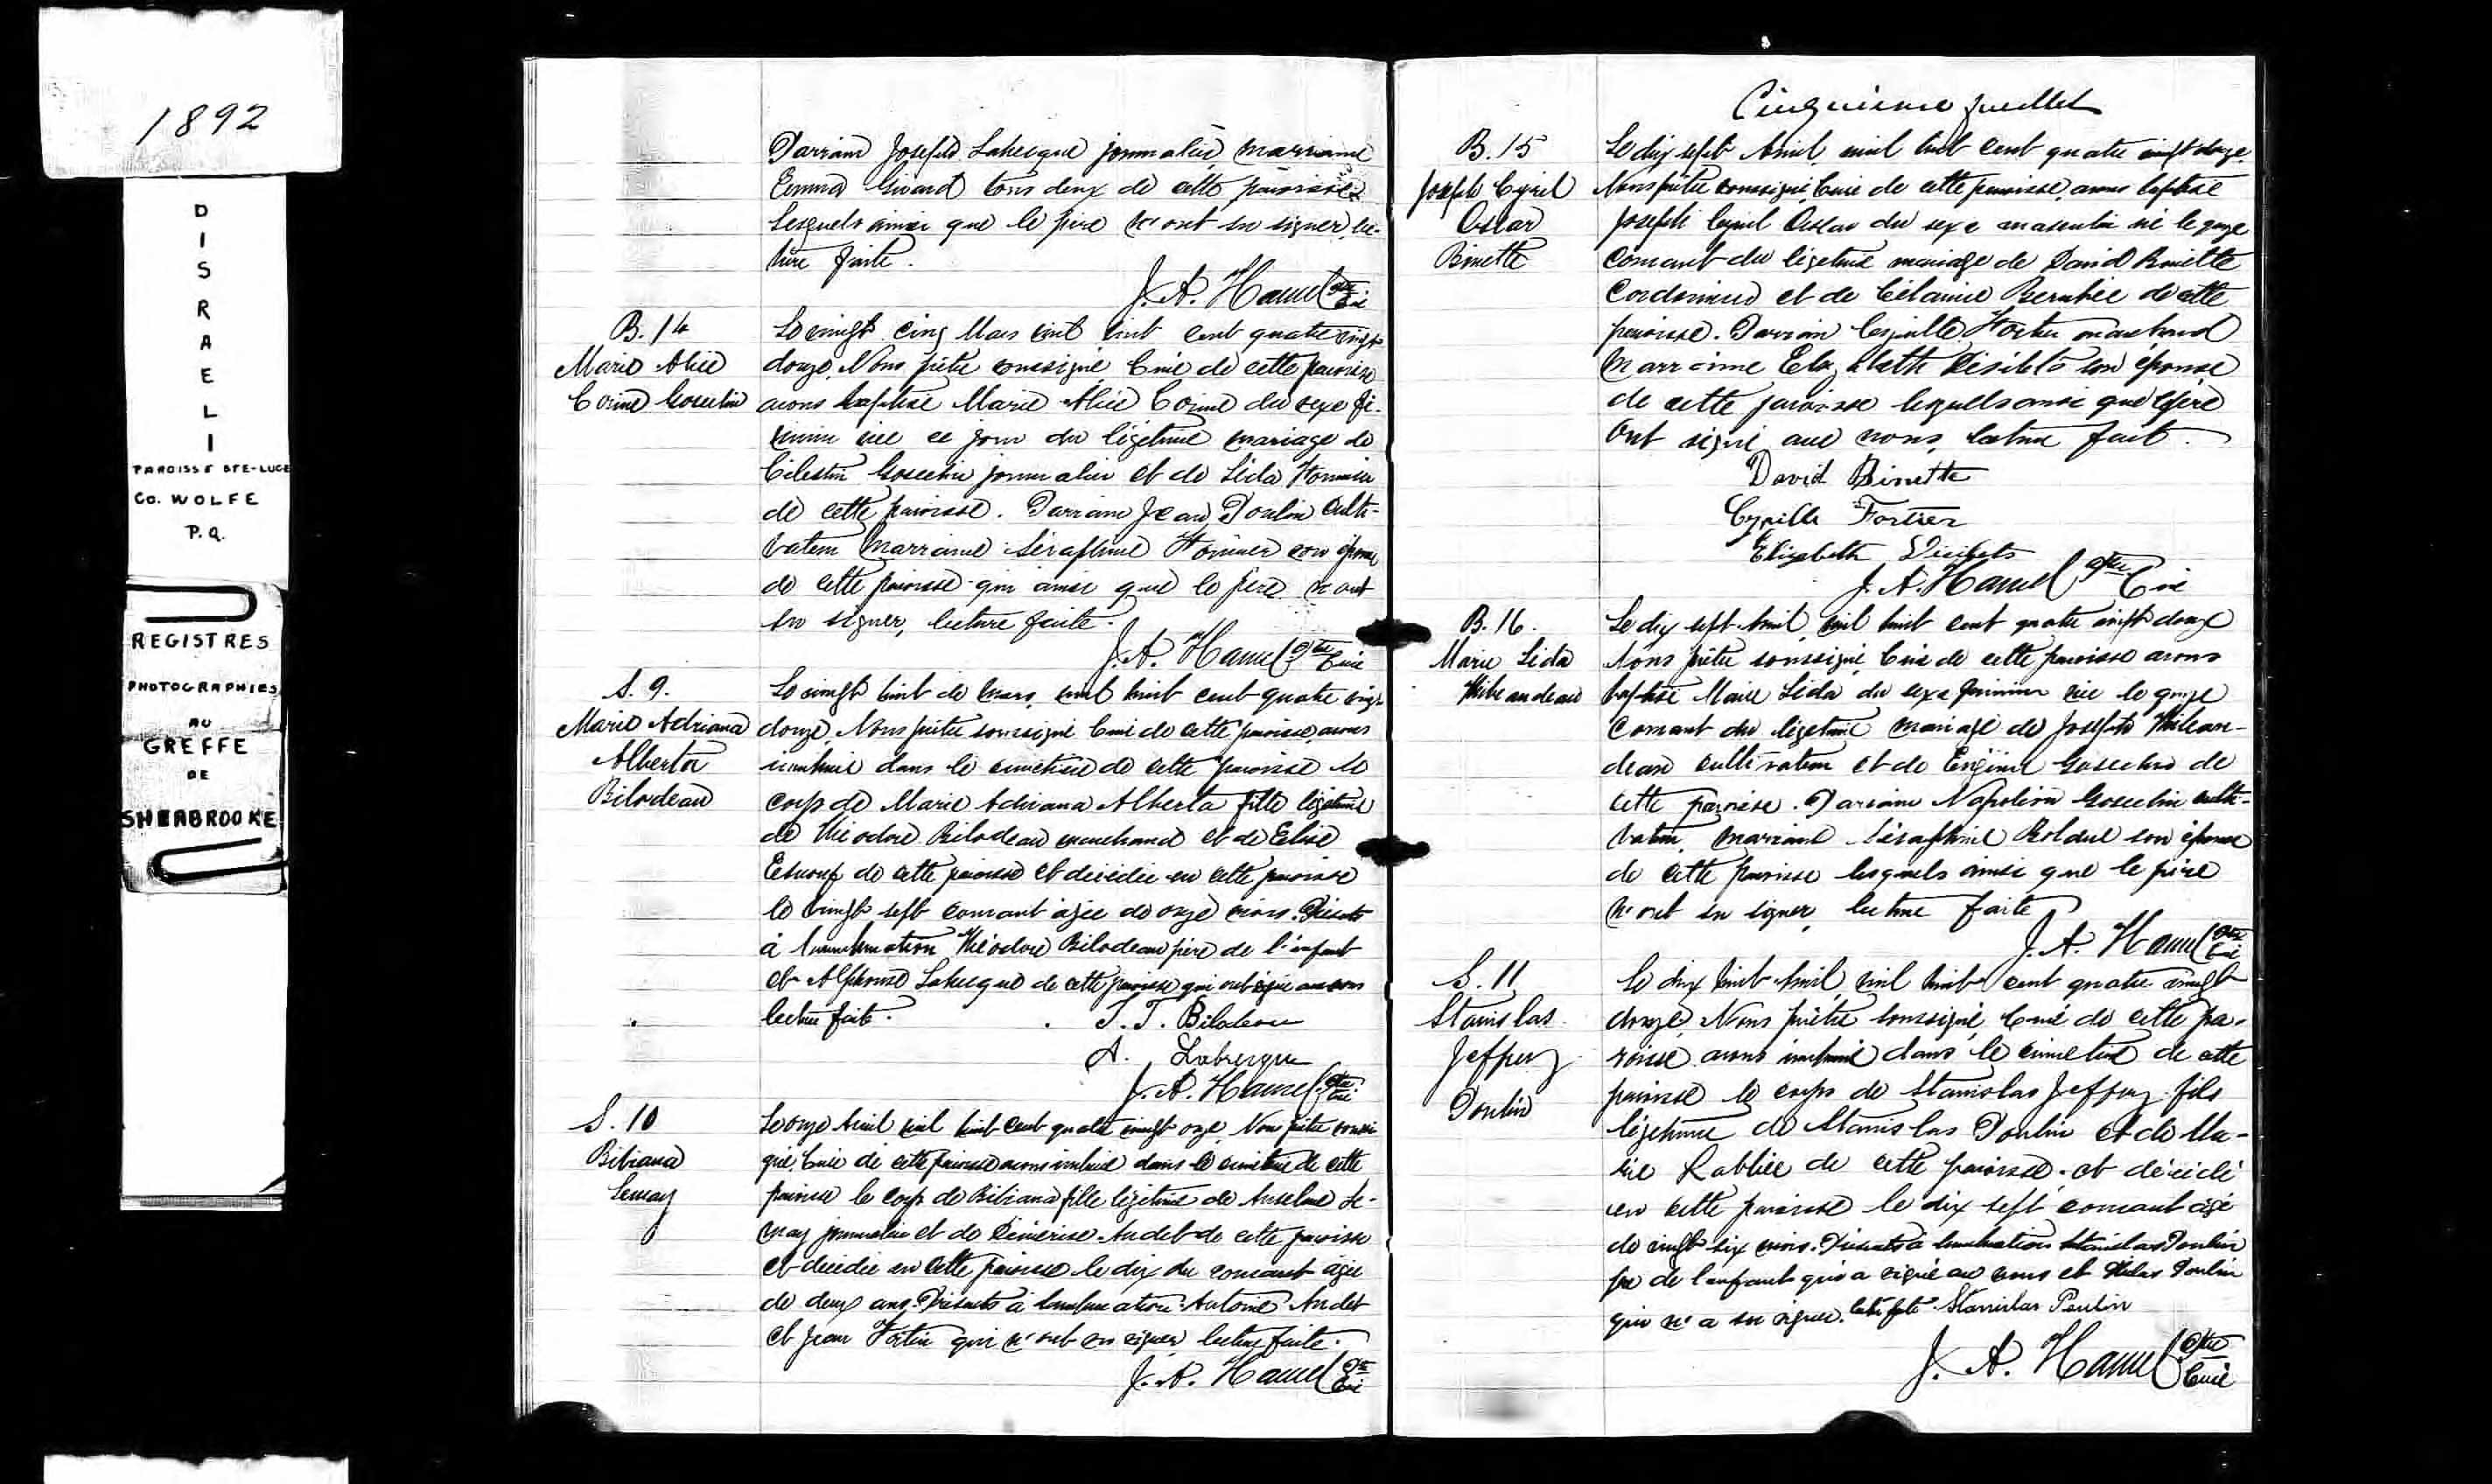 1892
D
I
S
R
A
E
L
I
PAROISSE STE-LUCE
CO. WOLFE
P.Q.
REGISTRES
PHOTOGRAPHIÉS
AU
GREFFE
DE
SHERBROOKE
Parrain Joseph Labergue journalier, marraine
Emma Girard tous deux de cette paroisse
lesquels ainsi que le père n'ont su signer, lec-
ture faite.
J. A. Hamel Ptre Curé
B. 14
Marie Alice
Corine Gosselin
Le vingt cinq Mars mil huit cent quatre vingt
douze, Nous prêtre soussigné Curé de cette paroisse
avons baptisé Marie Alice Corine du sexe fé-
minin née ce jour du légitime mariage de
Célestin Gosselin journalier et de Léda
de cette paroisse. Parrain Jean Poulin culti-
vateur Marraine Séraphine son épouse
de cette paroisse qui ainsi que le père n'ont
su signer, lecture faite.
J. A. Hamel Ptre Curé
S. 9.
Marie Adriana
Alberta
Bilodeau
Le vingt huit de Mars, mil huit cent quatre vingt
douze, Nous prêtre soussigné Curé de cette paroisse, avons
inhumé dans le cimetière de cette paroisse le
corps de Marie Adriana Alberta fille légitime
de Théodore Bilodeau marchand et de Elise
de cette paroisse et décédée en cette paroisse
le vingt sept courant âgée de onze mois. Présents
à l'inhumation Théodore Bilodeau père de l'enfant
et Alphonse Labergue de cette paroisse qui ont signé avec nous
lecture faite.
J. T. Bilodeau
A. Labrecque
J. A. Hamel Ptre Curé
S. 10
Bibiana
Lemay
Le onze Avril mil huit cent quatre vingt onze, Nous prêtre soussi-
gné, Curé de cette paroisse avons inhumé dans le cimetière de cette
paroisse le corps de Bibiana fille légitime de Anselme Le-
may journalier et de Audet de cette paroisse
et décédée en cette paroisse le dix du courant âgée
de deux ans. Présents à l'inhumation Antoine Audet
et Jean Fortin qui n'ont su signer, lecture faite.
J. A. Hamel Ptre Curé
Cinquième feuillet
B. 15
Joseph Cyriel
Oscar
Binette
Le dix sept Avril, mil huit cent quatre vingt douze.
Nous prêtre soussigné, Curé de cette paroisse, avons baptisé
Joseph Cyriel Oscar du sexe masculin né le quze
courant du légitime mariage de David Binette
Cordonnier et de Célanire Berubée de cette
paroisse. Parrain Cyrille Fortier marchand
Marraine Elizabeth Désilets son épouse
de cette paroisse lesquels ainsi que le père
Ont signé avec nous, lecture faite.
David Binette
Cyrille Fortier
Elizabeth Desilets
J. A. Hamel Ptre Curé
B. 16.
Marie Léda
Thibaudeau
Le dix sept Avril, mil huit cent quatre vingt douze
Nous prêtre soussigné, Curé de cette paroisse avons
baptisé Marie Léda du sexe féminin née le quze
courant du légitime mariage de Joseph Thibau-
deau cultivateur et de Gosselin de
cette paroisse. Parrain Napoléon Gosselin culti-
vateur, marraine Séraphine Bolduc son épouse
de cette paroisse lesquels ainsi que le père
n'ont su signer, lecture faite
J. A. Hamel Ptre Curé
S. 11
Stanislas
Jeffrey
Poulin
Le dix huit Avril, mil huit cent quatre vingt
douze, Nous prêtre soussigné, Curé de cette pa-
roisse avons inhumé dans le cimetière de cette
paroisse le corps de Stanislas Jeffrey fils
légitime de Stanislas Poulin et de Ma-
rie Labbée de cette paroisse et décédé
en cette paroisse le dix sept courant âgé
de vingt six mois. Présents à l'inhumation Stanislas Poulin
père de l'enfant qui a signé avec nous et Poulin
qui n'a su signer. lecture faite. Stanislas Poulin
J. A. Hamel Ptre Curé